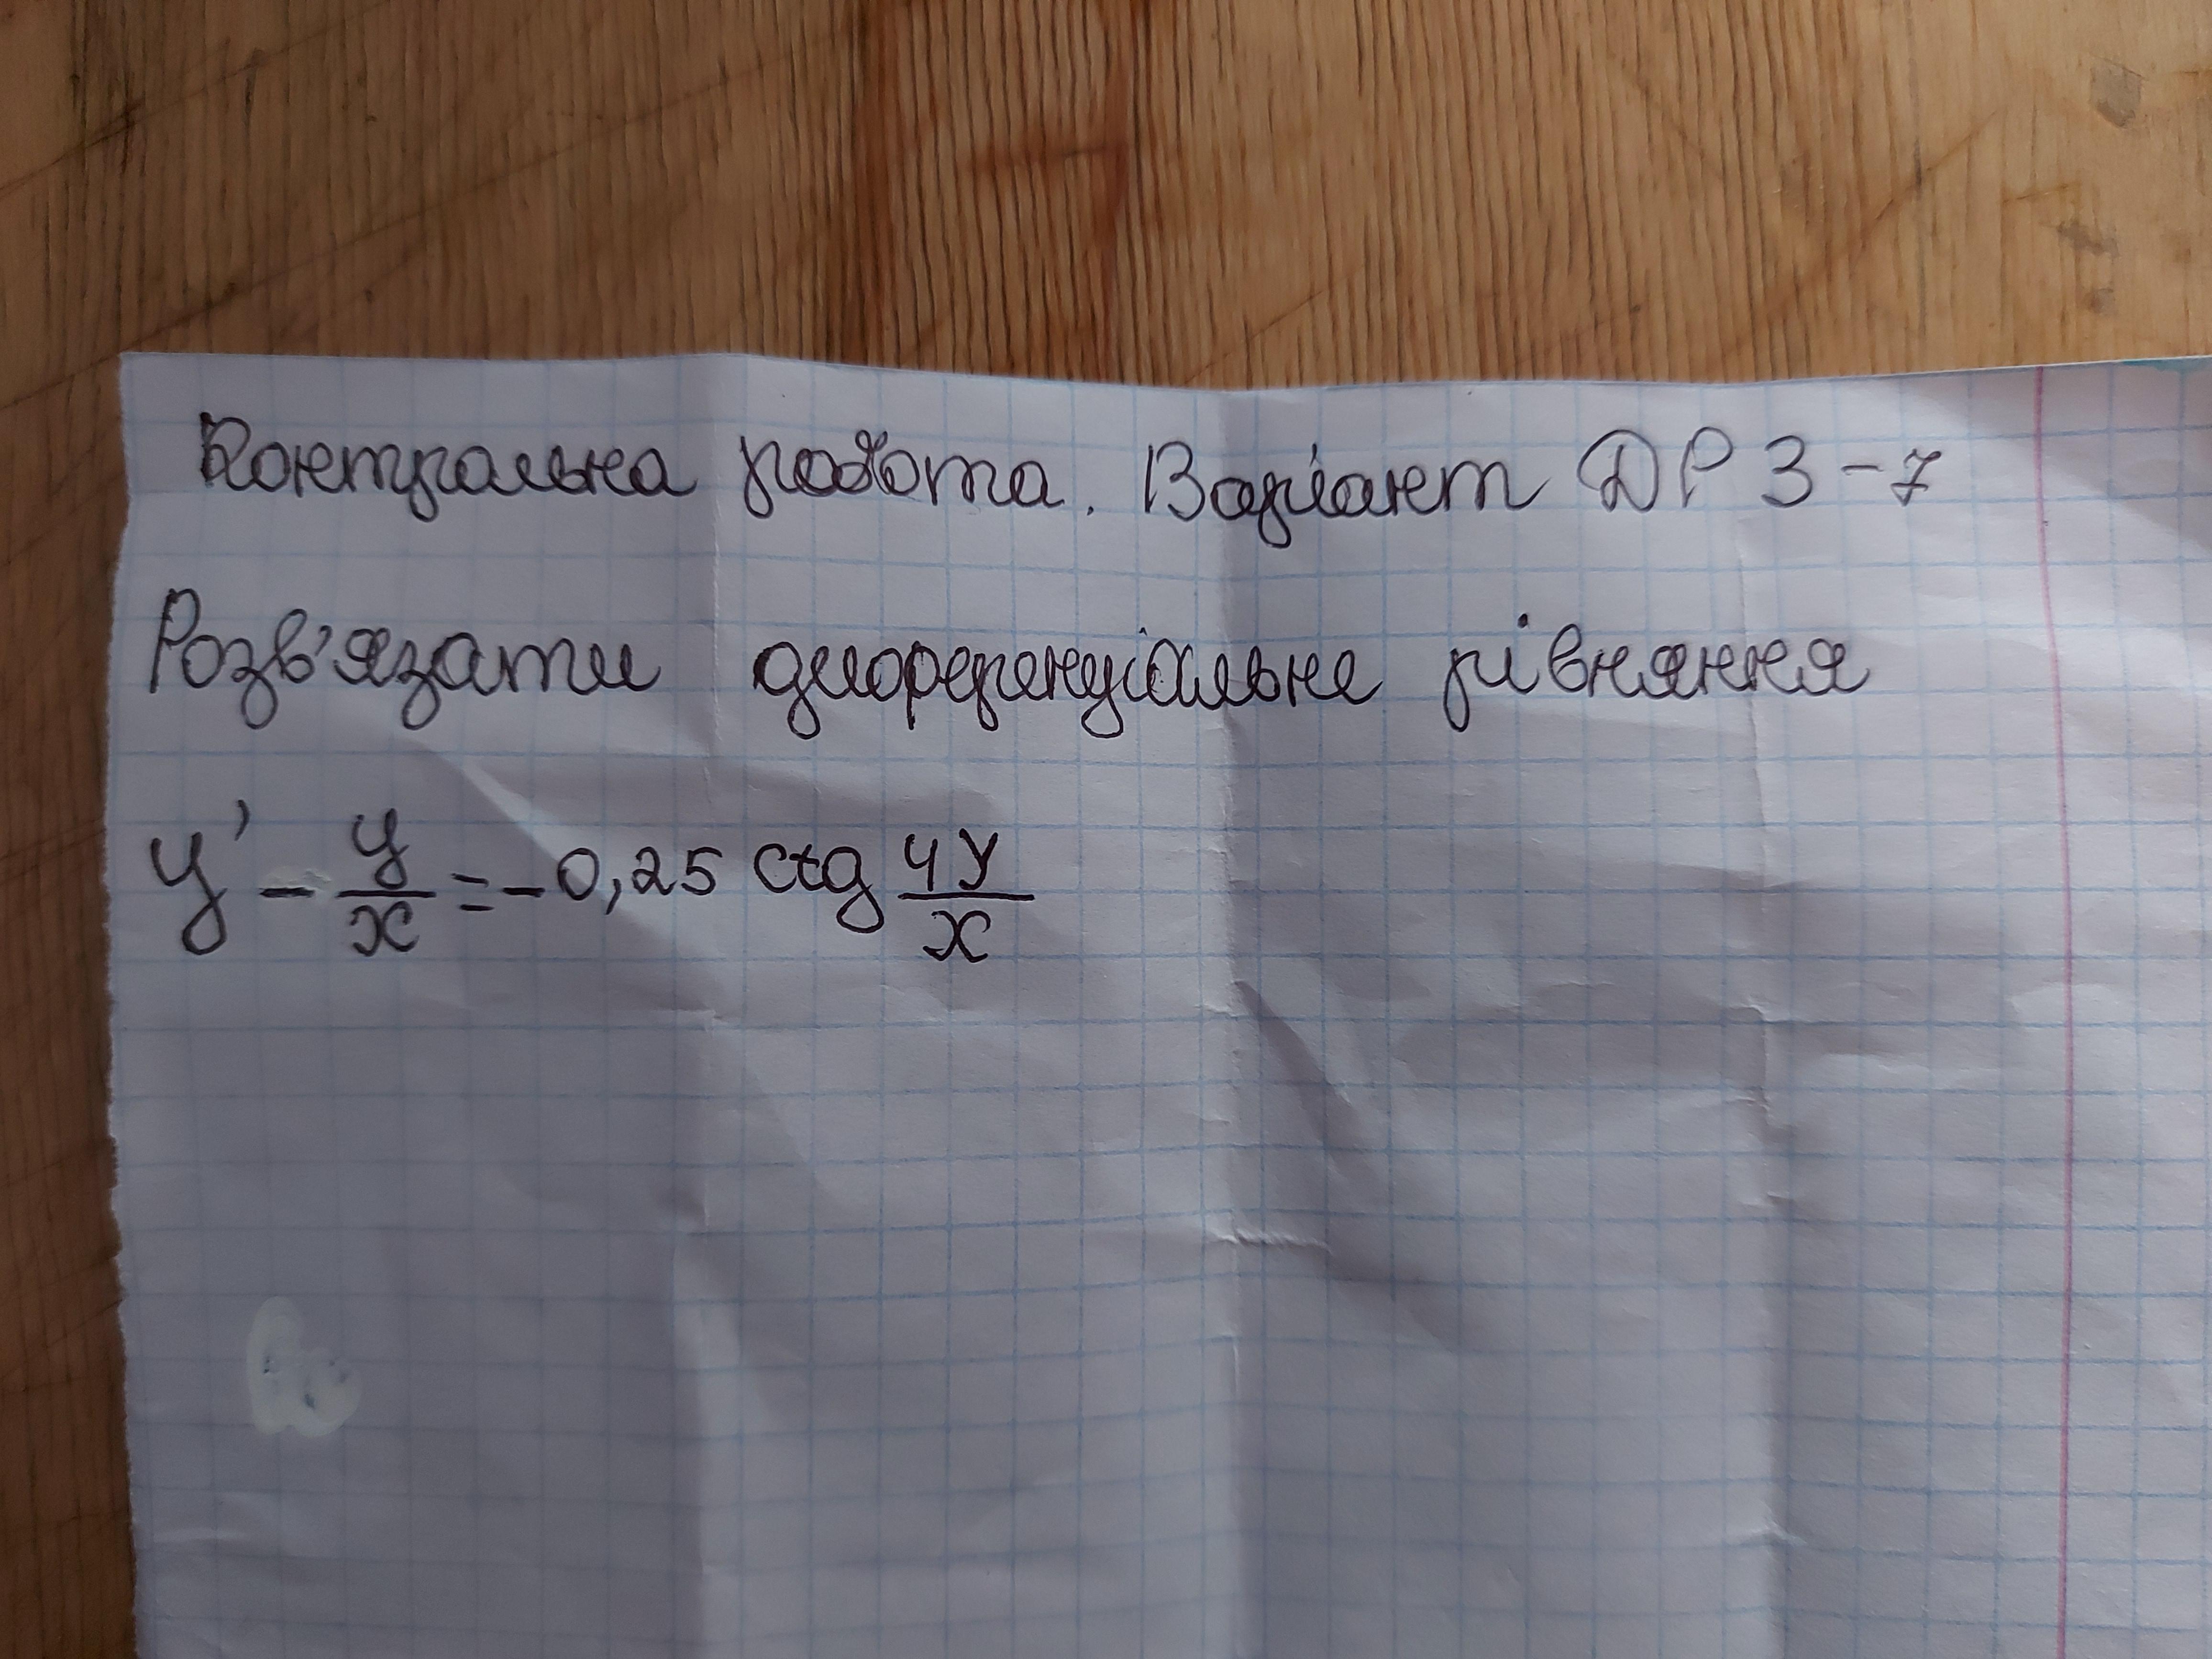 Контрольна робота. Варіант ДР 3-7
Розв'язати диференціальне рівняння
y' - y/x = -0,25 ctg 4y/x